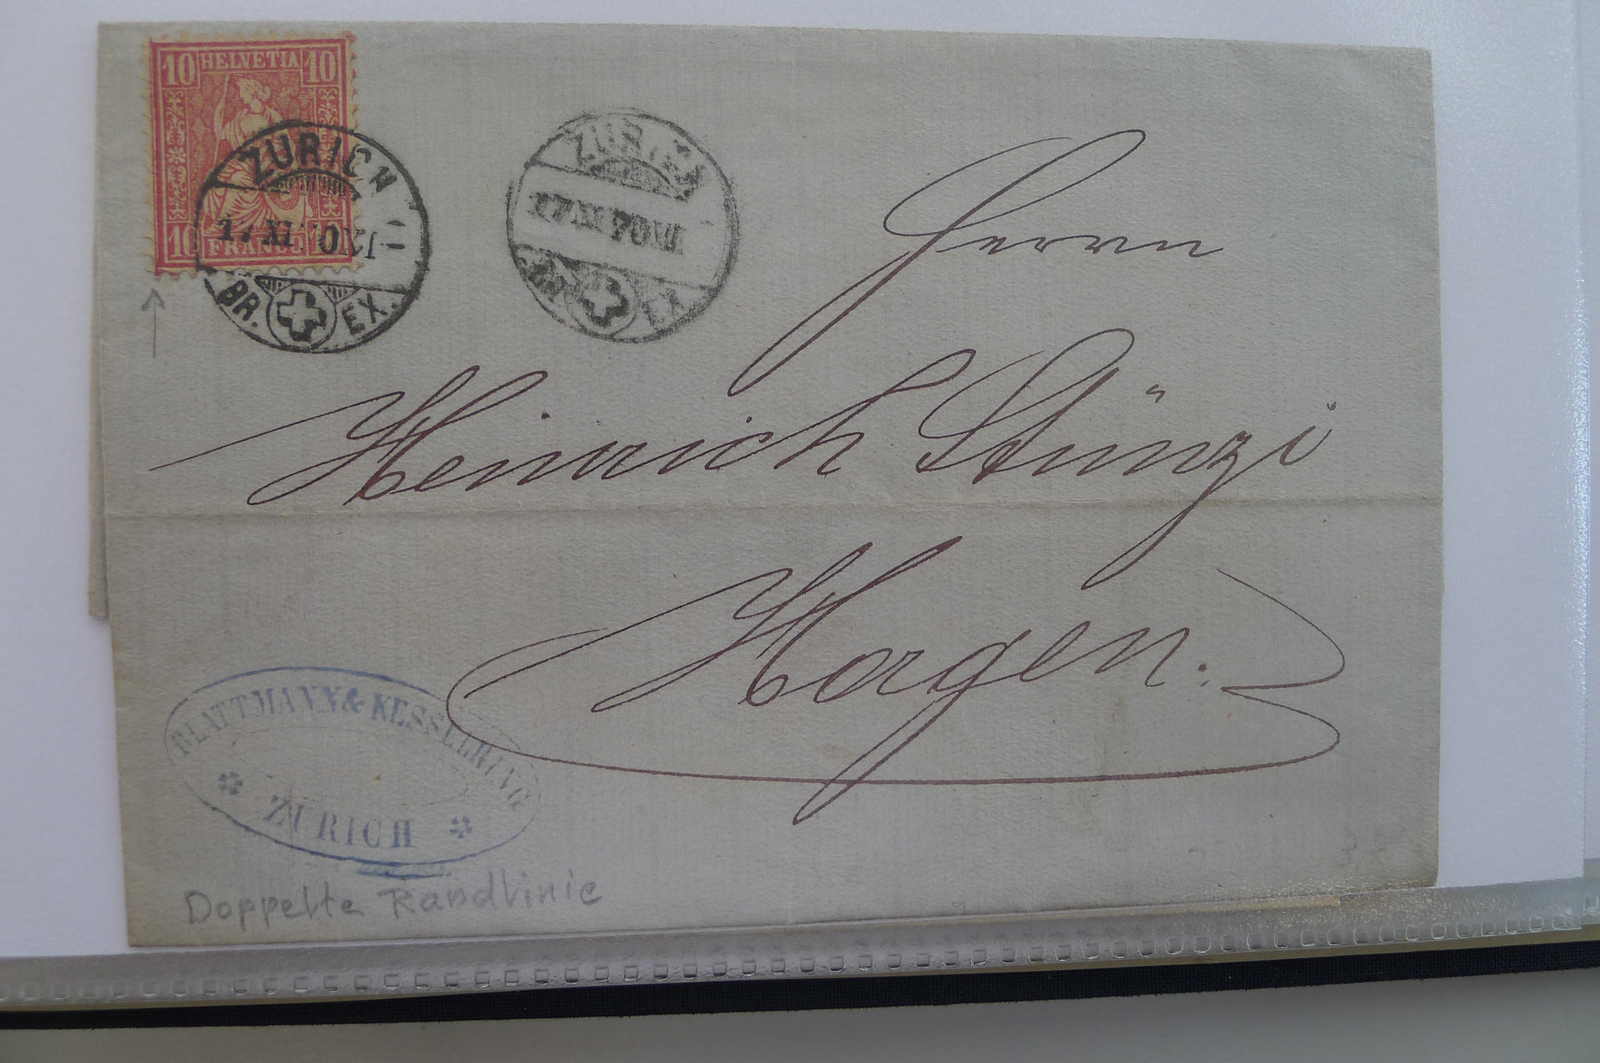 10 HELVETIA 10
10 FRANCO
ZÜRICH
17 XI 70
BR. EX.
ZÜRICH
17 XI 70 VII
BR. EX.
Herrn
Heinrich Stünzi
Horgen.
BLATTMANN & KESSELRING
ZÜRICH
Doppelte Randlinie